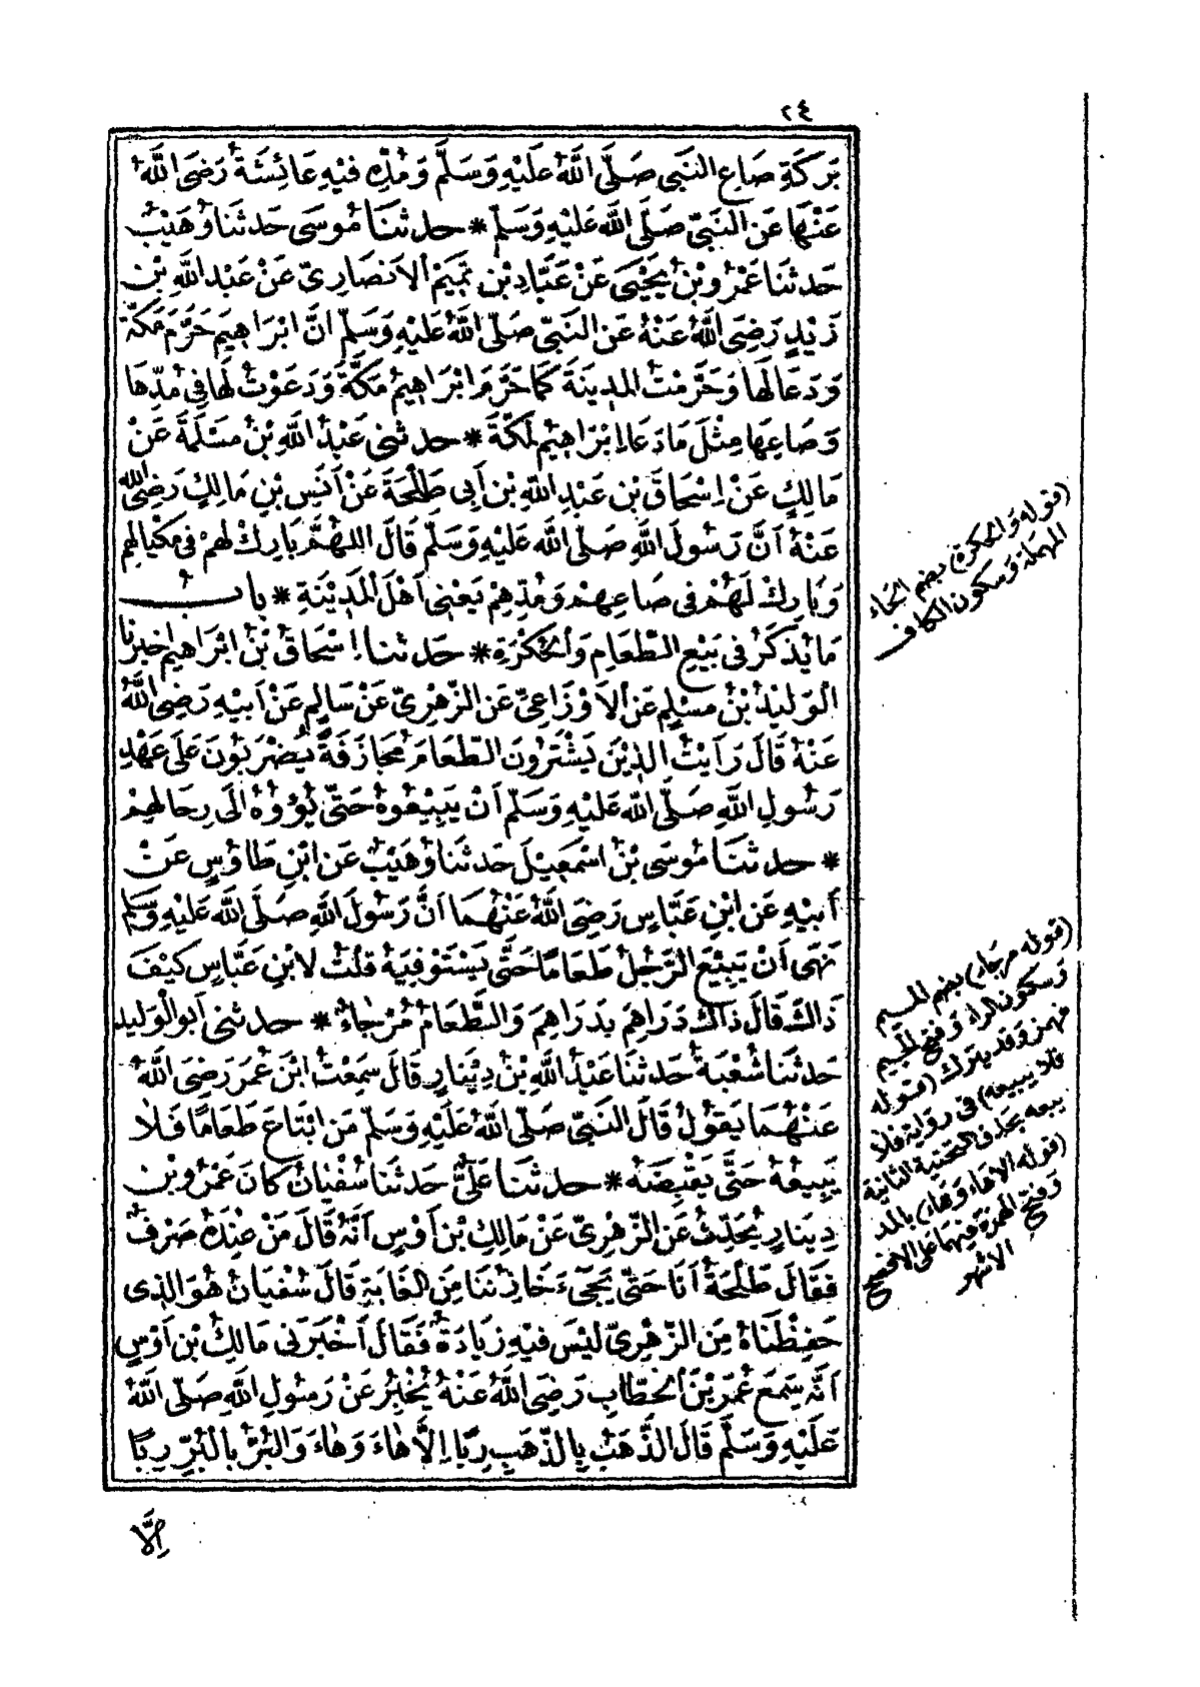 ٢٤
بَرَكَةِ صَاعِ النَّبِيِّ صَلَّى اللَّهُ عَلَيْهِ وَسَلَّمَ وَمُدِّهِ فِيْهِ عَائِشَةُ رَضِيَ اللَّهُ
عَنْهَا عَنِ النَّبِيِّ صَلَّى اللَّهُ عَلَيْهِ وَسَلَّمَ * حدثنَا مُوسَى حَدثنَا وُهَيْبٌ
حَدثنَا عَمْرُو بْنُ يَحْيَى عَنْ عَبَّادِ بْنِ تَمِيْمٍ الْاَنصَارِيِّ عَنْ عَبْدِ اللَّهِ بْنِ
زَيْدٍ رَضِيَ اللَّهُ عَنْهُ عَنِ النَّبِيِّ صَلَّى اللَّهُ عَلَيْهِ وَسَلَّمَ اَنَّ ابْرَاهِيمَ حَرَّمَ مَكَّةَ
وَدَعَا لَهَا وَحَرَّمْتُ المَدِينَةَ كَمَا حَرَّمَ ابْرَاهِيْمُ مَكَّةَ وَدَعَوْتُ لَهَا فِي مُدِّهَا
وَصَاعِهَا مِثْلَ مَا دَعَا اِبْرَاهِيْمُ لِمَكَّةَ * حدثنِى عَبْدُ اللَّهِ بْنُ مَسْلَمَةَ عَنْ
مَالِكٍ عَنْ اِسْحَاقَ بْنِ عَبْدِ اللَّهِ بْنِ اَبِى طَلْحَةَ عَنْ اَنَسِ بْنِ مَالِكٍ رَضِيَ اللَّهُ
عَنْهُ اَنَّ رَسُولَ اللَّهِ صَلَّى اللَّهُ عَلَيْهِ وَسَلَّمَ قَالَ اللهُمَّ بَارِكْ لَهُمْ فِى مِكْيَالِهِمْ
وَبَارِكْ لَهُمْ فِى صَاعِهِمْ وَمُدِّهِمْ يَعْنِى اَهْلَ الْمَدِيْنَةِ * بابُ
مَا يُذْكَرُ فِى بَيْعِ الطَّعَامِ وَالْحُكْرَةِ * حَدثنا اِسْحَاقُ بْنُ اِبْرَاهِيمَ اخبرنا
الْوَلِيْدُ بْنُ مُسْلِمٍ عَنِ الْاَوْزَاعِيِّ عَنِ الزُّهْرِيِّ عَنْ سَالِمٍ عَنْ اَبِيْهِ رَضِيَ اللَّهُ
عَنْهُ قَالَ رَاَيْتُ الذِيْنَ يَشْتَرُونَ الطَّعَامَ مُجَازَفَةً يُضْرَبُونَ عَلَى عَهْدِ
رَسُولِ اللَّهِ صَلَّى اللَّهُ عَلَيْهِ وَسَلَّمَ اَنْ يَبِيْعُوهُ حَتَّى يُؤْوُهُ اِلَى رِحَالِهِمْ
* حدثنَا مُوسَى بْنُ اسْمَعِيْلَ حَدثنَا وُهَيْبٌ عَنِ ابْنِ طَاوُسٍ عَنْ
اَبِيْهِ عَنِ ابْنِ عَبَّاسٍ رَضِيَ اللَّهُ عَنْهُمَا اَنَّ رَسُولَ اللَّهِ صَلَّى اللَّهُ عَلَيْهِ وَسَلَّمَ
نَهَى اَنْ يَبِيْعَ الرَّجُلُ طَعَامًا حَتَّى يَسْتَوْفِيَهُ قُلْتُ لابْنِ عَبَّاسٍ كَيْفَ
ذَاكَ قَالَ ذَاكَ دَرَاهِمُ بِدَرَاهِمَ وَالطَّعَامُ مُرْجَأٌ * حدثنى اَبُو الْوَلِيدِ
حَدثنَا شُعْبَةُ حَدثنَا عَبْدُ اللَّهِ بْنُ دِيْنَارٍ قَالَ سَمِعْتُ ابْنَ عُمَرَ رَضِيَ اللَّهُ
عَنْهُمَا يَقُولُ قَالَ النَّبِيُّ صَلَّى اللَّهُ عَلَيْهِ وَسَلَّمَ مَنِ ابْتَاعَ طَعَامًا فَلَا
يَبِيْعُهُ حَتَّى يَقْبِضَهُ * حدثنَا عَلِيٌّ حَدثنَا سُفْيَانُ كَانَ عَمْرُو بْنُ
دِينَارٍ يُحَدِّثُ عَنِ الزُّهْرِيِّ عَنْ مَالِكِ بْنِ اَوْسٍ اَنَّهُ قَالَ مَنْ عِنْدَهُ صَرْفٌ
فَقَالَ طَلْحَةُ اَنَا حَتَّى يَجِيْءَ خَازِنُنَا مِنَ الغَابَةِ قَالَ سُفْيَانُ هُوَ الَّذِى
حَفِظْنَاهُ مِنَ الزُّهْرِيِّ لَيْسَ فِيْهِ زِيَادَةٌ فَقَالَ اَخْبَرَنِى مَالِكُ بْنُ اَوْسٍ
اَنَّهُ سَمِعَ عُمَرَ بْنَ الْخَطَّابِ رَضِيَ اللَّهُ عَنْهُ يُخْبِرُ عَنْ رَسُولِ اللَّهِ صَلَّى اللَّهُ
عَلَيْهِ وَسَلَّمَ قَالَ الذَّهَبُ بِالذَّهَبِ رِبًا اِلَّا هَاءَ وَهَاءَ وَالبُرُّ بِالْبُرِّ رِبًا
اِلَّا
(قوله وَالحكرة) بضم الحاء
المهملة وَسكون الكاف
(قوله مرجاء) بضم الميم
وَسكون الراء وَفتح الجيم
مهمز وَقد يترك (قوله
فلا يبيعه) فى رواية فلا
يبعه بحذف التحتية الثانية
(قوله الاهاء وَهاء) بالمد
وَفتح الهمزة فيهما على الافصح
الاشهر